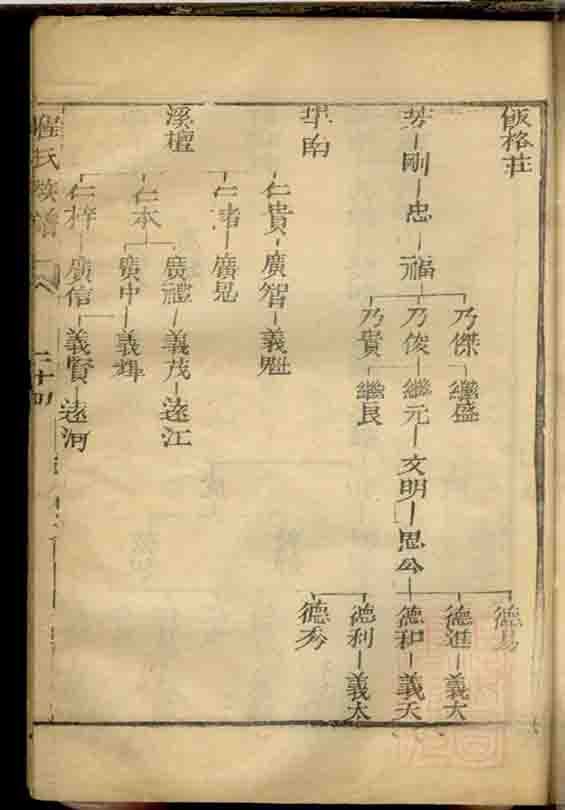 飯格莊
芳 剛 忠 福
乃傑 繼盛
乃俊 繼元 文明 思公
乃貴 繼良
德易
德進 義大
德和 義天
德利 義太
德秀
溪檀
仁貴 廣智 義魁
廣忌
仁本
廣禮 義茂 遠江
廣中 義輝
仁梓 廣信 義賢 遠河
程氏族譜
二十四